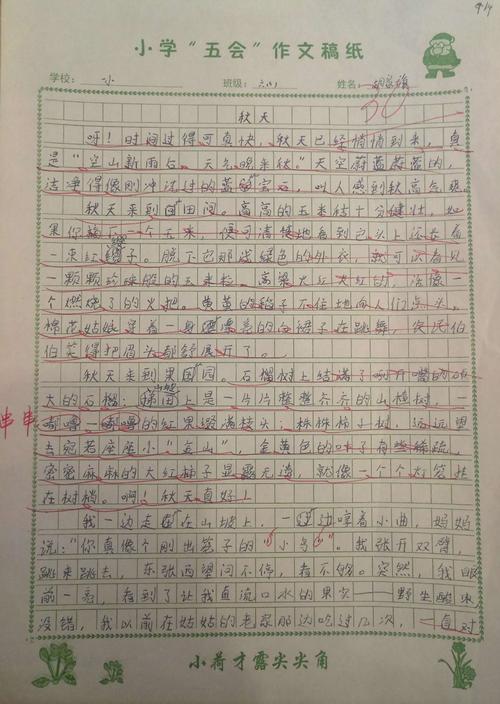 小学“五会”作文稿纸
学校: 一小 班级: 六(1) 姓名:
秋天
呀！时间过得可真快，秋天已经悄悄到来，真
是“空山新雨后，天气晚来秋。”天空蔚蓝蔚蓝的，
洁净得像刚冲洗过的蓝宝石，叫人感到秋高气爽。
秋天来到田间。高高的玉米结十分健壮，如
果你 一个玉米，便可清楚地看到它头上还长着
一束红缨子。脱下它那浅绿色的外衣，就可以看见
一颗颗珍珠般的玉米粒。高粱火红火红的，活像一
个燃烧了的火把。黄黄的稻子不住地向人们点头。
棉花姑娘穿着一身漂亮的白裙子在跳舞，农民伯
伯笑得把眉头都舒展开了。
秋天来到果园。石榴树上结满了咧开嘴的硕
大的石榴；上是一片片整整齐齐的山楂树，一
串串的红果缀满枝头；株株柿子树，远远望
去宛若座座小“金山”，金黄色的叶子有些稀疏，
密密麻麻的大红柿子显露无遗，就像一个个灯笼挂
在树梢。啊！秋天真好！
我一边走在山坡上，一边哼着小曲，妈妈
说：“你真像个刚出笼子的“小鸟”。我张开双臂，
跳来跳去，东张西望问不停，看不够。突然，我眼
前一亮，看到了让我直流口水的果实——野生酸枣，
没错，我以前在姑姑的老家那边吃过几次，一直对
串串
小荷才露尖尖角